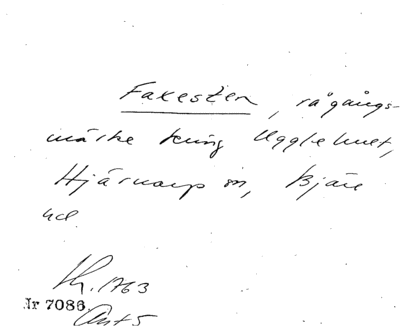 Faxesten, rågångs-
märke kring Ugglehult,
Hjärnarp sn, Bjäre
hd.
Kh. 1763
Nr 7086
Akt 5